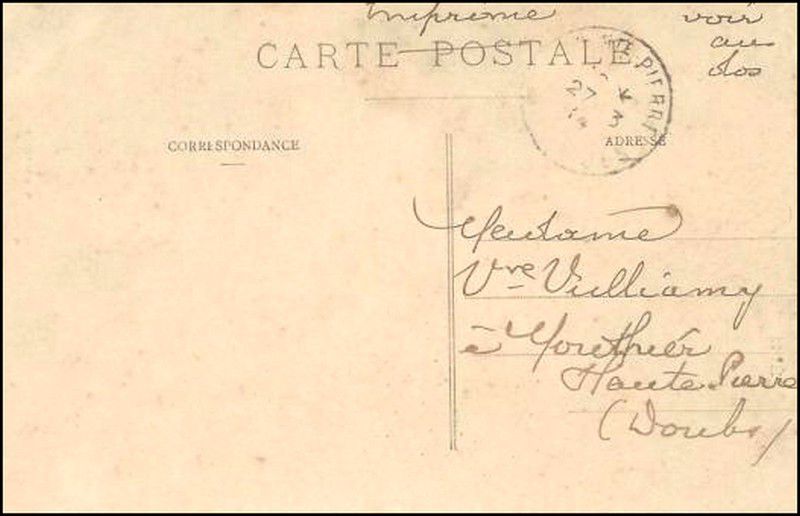 Imprimé voir
au
dos
CARTE POSTALE
PIERRE
27 3
CORRESPONDANCE
ADRESSE
Madame
Vve Vulliamy
à Mouthier
Haute Pierre
(Doubs)